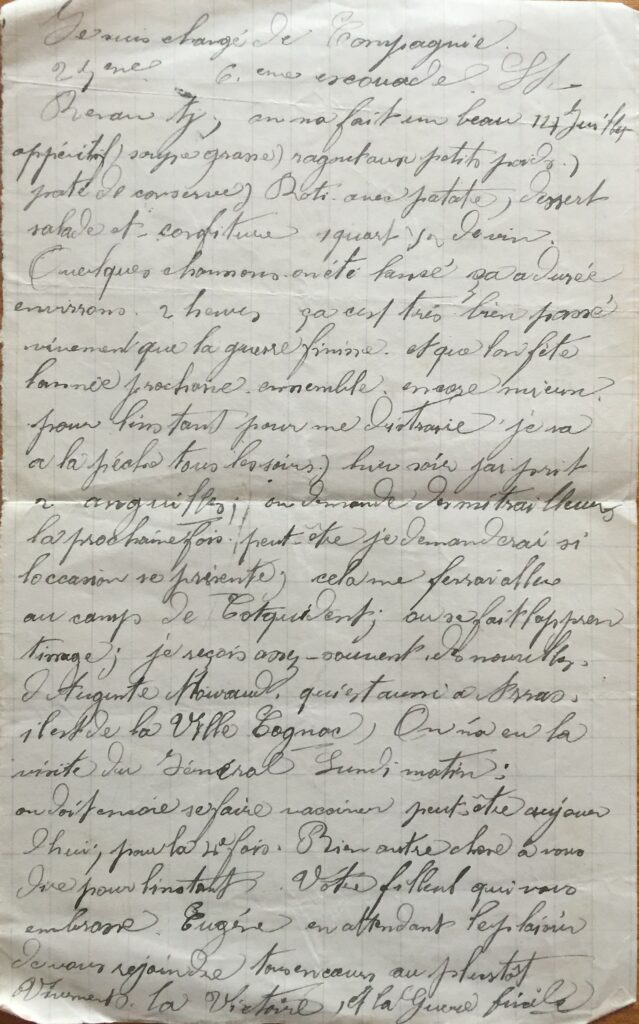 Je suis changé de Compagnie.
25eme 6.eme escouade.
on na fait un beau 14 Juillet
appéritif) soupe grasse) ragout aux petits poids.)
paté de conserve) Roti avec patate, dessert
salade et confiture quart de vin.
Quelques chansons on été lansé sa a durée
envirrons 2 heures ça cest très bien passé
vivement que la guerre finisse. et que lon fête
lannée prochaine ensemble encore mieux.
pour linstant pour me distraire je va
a la pêche tous les soirs) hier soir jai prit
2 anguilles; on demande des mitrailleurs
la prochaine fois peut-être je demanderai si
loccasion se présente; cela me ferrai aller
au camp de Cotquident; ou se fait lappren
tissage; je reçois assez souvent des nouvelles
d'Auguste qui est aussi a Arras.
il est de la Ville Cognac) On na eu la
visite du Général Lundi matin;
on doit encore se faire vacciner peut-être aujour
dhui, pour la 4e fois. Rien autre chose a vous
dire pour linstant. Votre filleul qui vous
embrasse. Eugène en attendant le plaisir
de vous rejoindre tous en cœurs au plustôt
Vivement la Victoire, et la Guerre finie